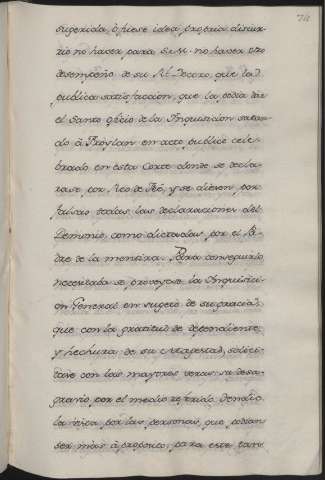 sugerida, ò fuese idea, propria discur-
rio no haver para S.M. no haver otro
desempeño de su Rl. Decoro, que la
publica satisfaccion, que la podia dar
el Santo oficio de la Inquisicion sacan-
do à Froylan en acto publico cele-
brado en esta Corte donde se decla-
rase por Reo de Fè, y se diesen por
falsas todas las declaraciones del
Demonio como dictadas por el Pa-
dre de la mentira. Para conseguirlo
necesitaba se proveyese la Inquisici-
on General en sugeto de su gracia
que con la gratitud de dependiente,
y hechura de su Magestad, solici-
tase con las mayores veras su desa-
gravio por el medio referido. Tendio
la vista por las personas, que podian
ser mas à proposito, para este tan